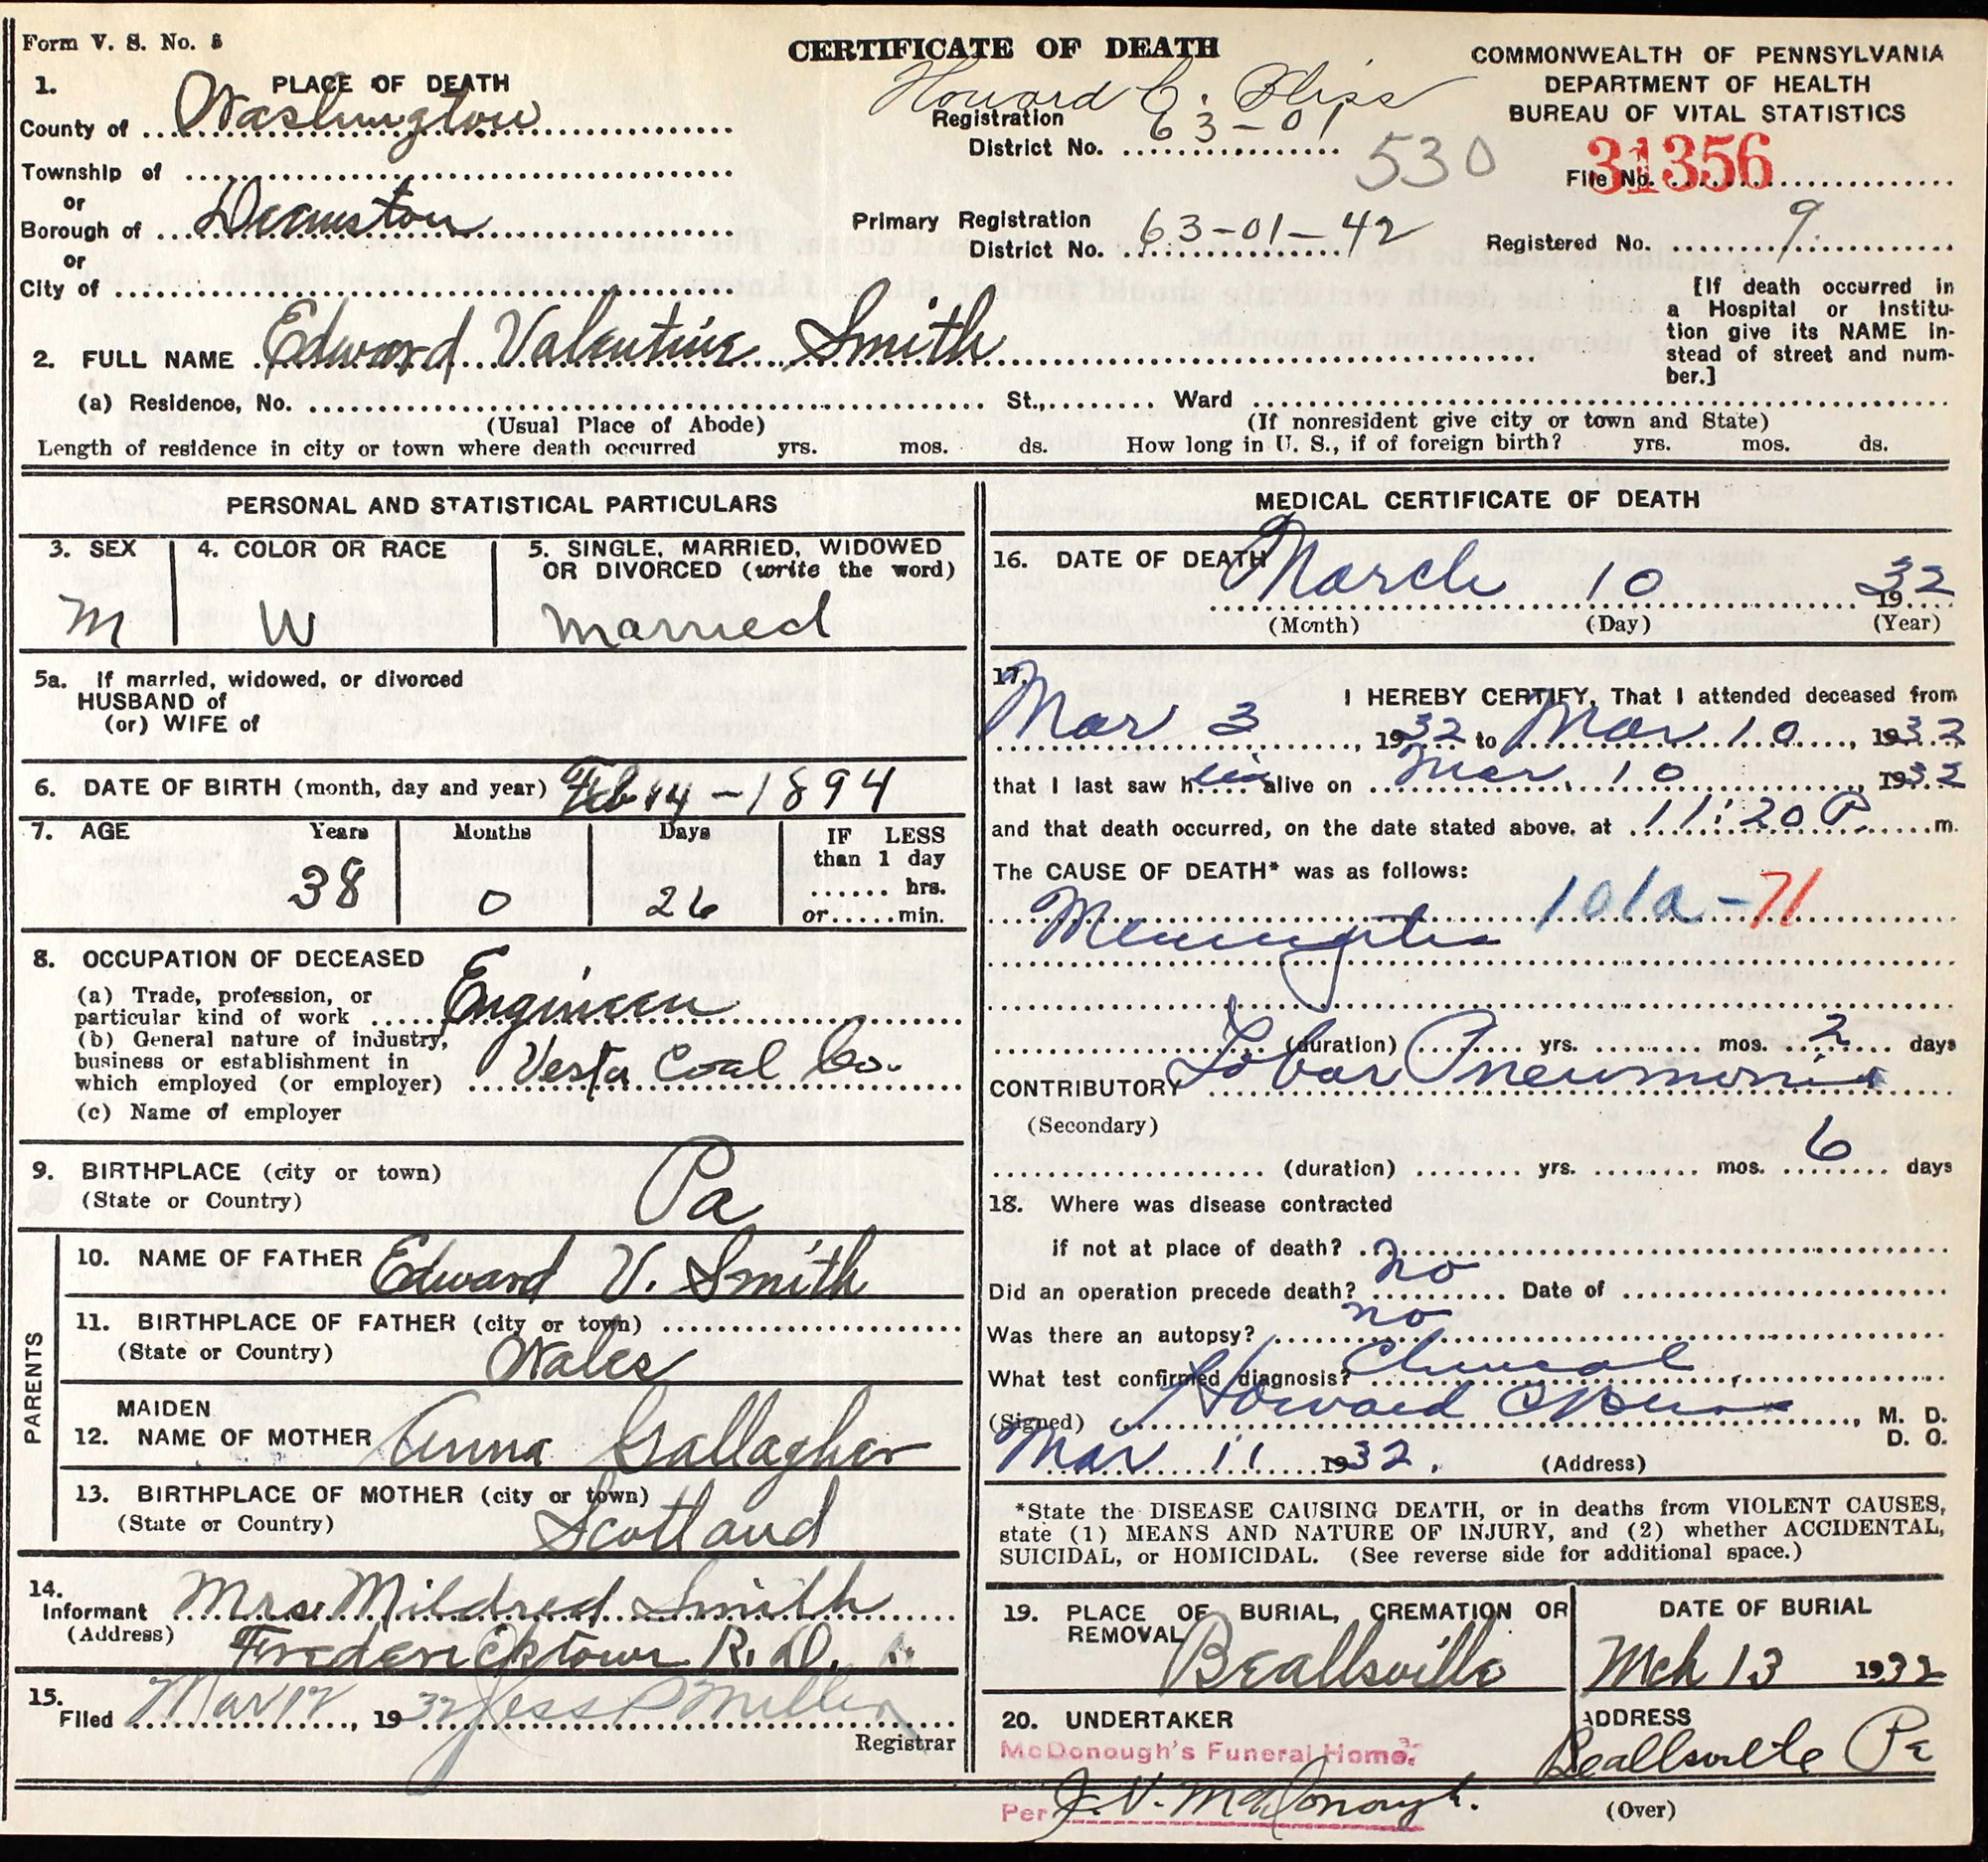 Form V. S. No. 5
CERTIFICATE OF DEATH
COMMONWEALTH OF PENNSYLVANIA
DEPARTMENT OF HEALTH
BUREAU OF VITAL STATISTICS
1. PLACE OF DEATH
County of Washington
Township of
or
Borough of Deemston
or
City of
Howard C. Bliss
Registration
District No. 63-01
530
Primary Registration
District No. 63-01-42
File No. 31356
Registered No. 9
[If death occurred in
a Hospital or Institu-
tion give its NAME in-
stead of street and num-
ber.]
2. FULL NAME Edward Valentine Smith
(a) Residence, No. St., Ward
(Usual Place of Abode) (If nonresident give city or town and State)
Length of residence in city or town where death occurred yrs. mos. ds. How long in U. S., if of foreign birth? yrs. mos. ds.
PERSONAL AND STATISTICAL PARTICULARS
3. SEX
M
4. COLOR OR RACE
W
5. SINGLE, MARRIED, WIDOWED
OR DIVORCED (write the word)
Married
5a. If married, widowed, or divorced
HUSBAND of
(or) WIFE of
6. DATE OF BIRTH (month, day and year) Feb 14 - 1894
7. AGE Years Months Days
38 0 26
IF LESS
than 1 day
...... hrs.
or ..... min.
8. OCCUPATION OF DECEASED
(a) Trade, profession, or
particular kind of work Engineer
(b) General nature of industry,
business or establishment in
which employed (or employer) Vesta Coal Co.
(c) Name of employer
9. BIRTHPLACE (city or town)
(State or Country) Pa
PARENTS
10. NAME OF FATHER Edward V. Smith
11. BIRTHPLACE OF FATHER (city or town)
(State or Country) Wales
MAIDEN
12. NAME OF MOTHER Anna Gallagher
13. BIRTHPLACE OF MOTHER (city or town)
(State or Country) Scotland
14. Informant Mrs. Mildred Smith
(Address) Fredericktown R. D.
15. Filed Mar 12, 1932 Jess P Miller
Registrar
MEDICAL CERTIFICATE OF DEATH
16. DATE OF DEATH March 10 1932
(Month) (Day) (Year)
17. I HEREBY CERTIFY, That I attended deceased from
Mar 3, 1932 to Mar 10, 1932
that I last saw him alive on Mar 10, 1932
and that death occurred, on the date stated above, at 11:20 P. m.
The CAUSE OF DEATH* was as follows:
101a-71
Meningitis
(duration) yrs. mos. 2 days
CONTRIBUTORY Lobar Pneumonia
(Secondary)
(duration) yrs. mos. 6 days
18. Where was disease contracted
if not at place of death?
Did an operation precede death? no Date of
Was there an autopsy? no
What test confirmed diagnosis? Clinical
(Signed) Howard C Bliss, M. D.
D. O.
Mar 11 1932. (Address)
*State the DISEASE CAUSING DEATH, or in deaths from VIOLENT CAUSES,
state (1) MEANS AND NATURE OF INJURY, and (2) whether ACCIDENTAL,
SUICIDAL, or HOMICIDAL. (See reverse side for additional space.)
19. PLACE OF BURIAL, CREMATION OR
REMOVAL
Beallsville
DATE OF BURIAL
Mch 13 1932
20. UNDERTAKER
McDonough's Funeral Home
Per J. V. McDonough.
ADDRESS
Beallsville Pa
(Over)